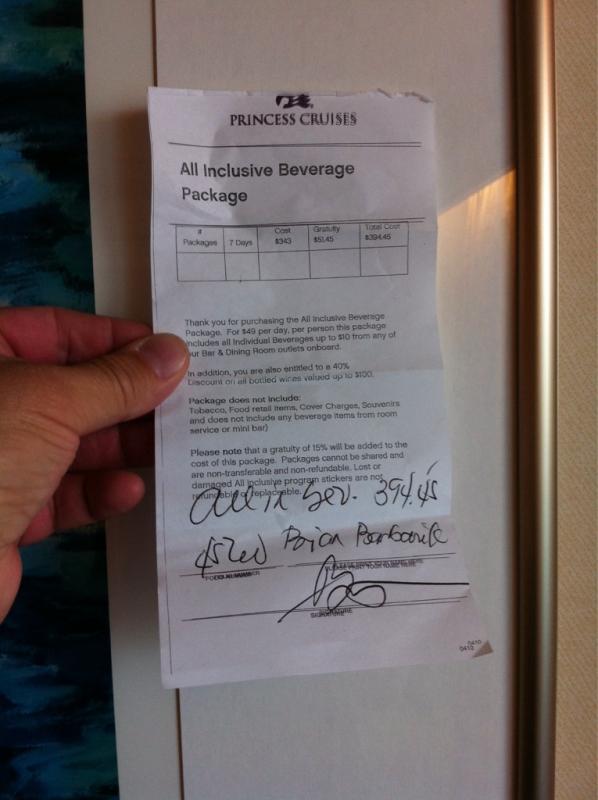 PRINCESS CRUISES
All Inclusive Beverage
Package
# Packages 7 Days Cost $343 Gratuity $51.45 Total Cost $394.45
Thank you for purchasing the All Inclusive Beverage
Package. For $49 per day, per person this package
includes all Individual Beverages up to $10 from any of
our Bar & Dining Room outlets onboard.
In addition, you are also entitled to a 40%
Discount on all bottled wines valued up to $100.
Package does not include:
Tobacco, Food retail items, Cover Charges, Souvenirs
and does not include any beverage items from room
service or mini bar)
Please note that a gratuity of 15% will be added to the
cost of this package. Packages cannot be shared and
are non-transferable and non-refundable. Lost or
damaged All inclusive program stickers are not
refundable or replaceable.
All in Bev. 394.45
PLEASE PRINT YOUR NAME HERE
FOLIO NUMBER
SIGNATURE
0410